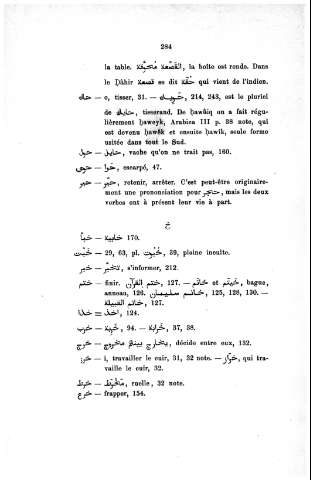 284
la table. القصعة مُحيّقة, la boîte est ronde. Dans
le Ḍâhir قصعة se dit حُقّة qui vient de l'indien.
حاك — o, tisser, 31. — حَوِيك, 214, 243, est le pluriel
de حايك, tisserand. De ḥawâiq on a fait régu-
lièrement ḥaweyk, Arabica III p. 38 note, qui
est devenu ḥawêk et ensuite ḥawîk, seule forme
usitée dans tout le Sud.
حيل — حايل, vache qu'on ne trait pas, 160.
حوى — حَوا, escarpé, 47.
حير — حيّر, retenir, arrêter. C'est peut-être originaire-
ment une prononciation pour حجّر, mais les deux
verbes ont à présent leur vie à part.
خ
خبأ — خابية 170.
خبت — 29, 63, pl. خُبوت, 39, plaine inculte.
خبر — تخبّر, s'informer, 212.
ختم — finir. ختم القرآن, 127. — خيتم et خاتم, bague,
anneau, 126. خاتم سليمان, 125, 128, 130. —
خاتم القبيلة, 127.
خذا = اخذ, 124.
خرب — خربة, 94. — خرابة, 37, 38.
خرج — يخارج بينهم مخروج, décide entre eux, 132.
خرز — i, travailler le cuir, 31, 32 note. — خرّاز, qui tra-
vaille le cuir, 32.
خرط — مخرط, ruelle, 32 note.
خرع — frapper, 154.